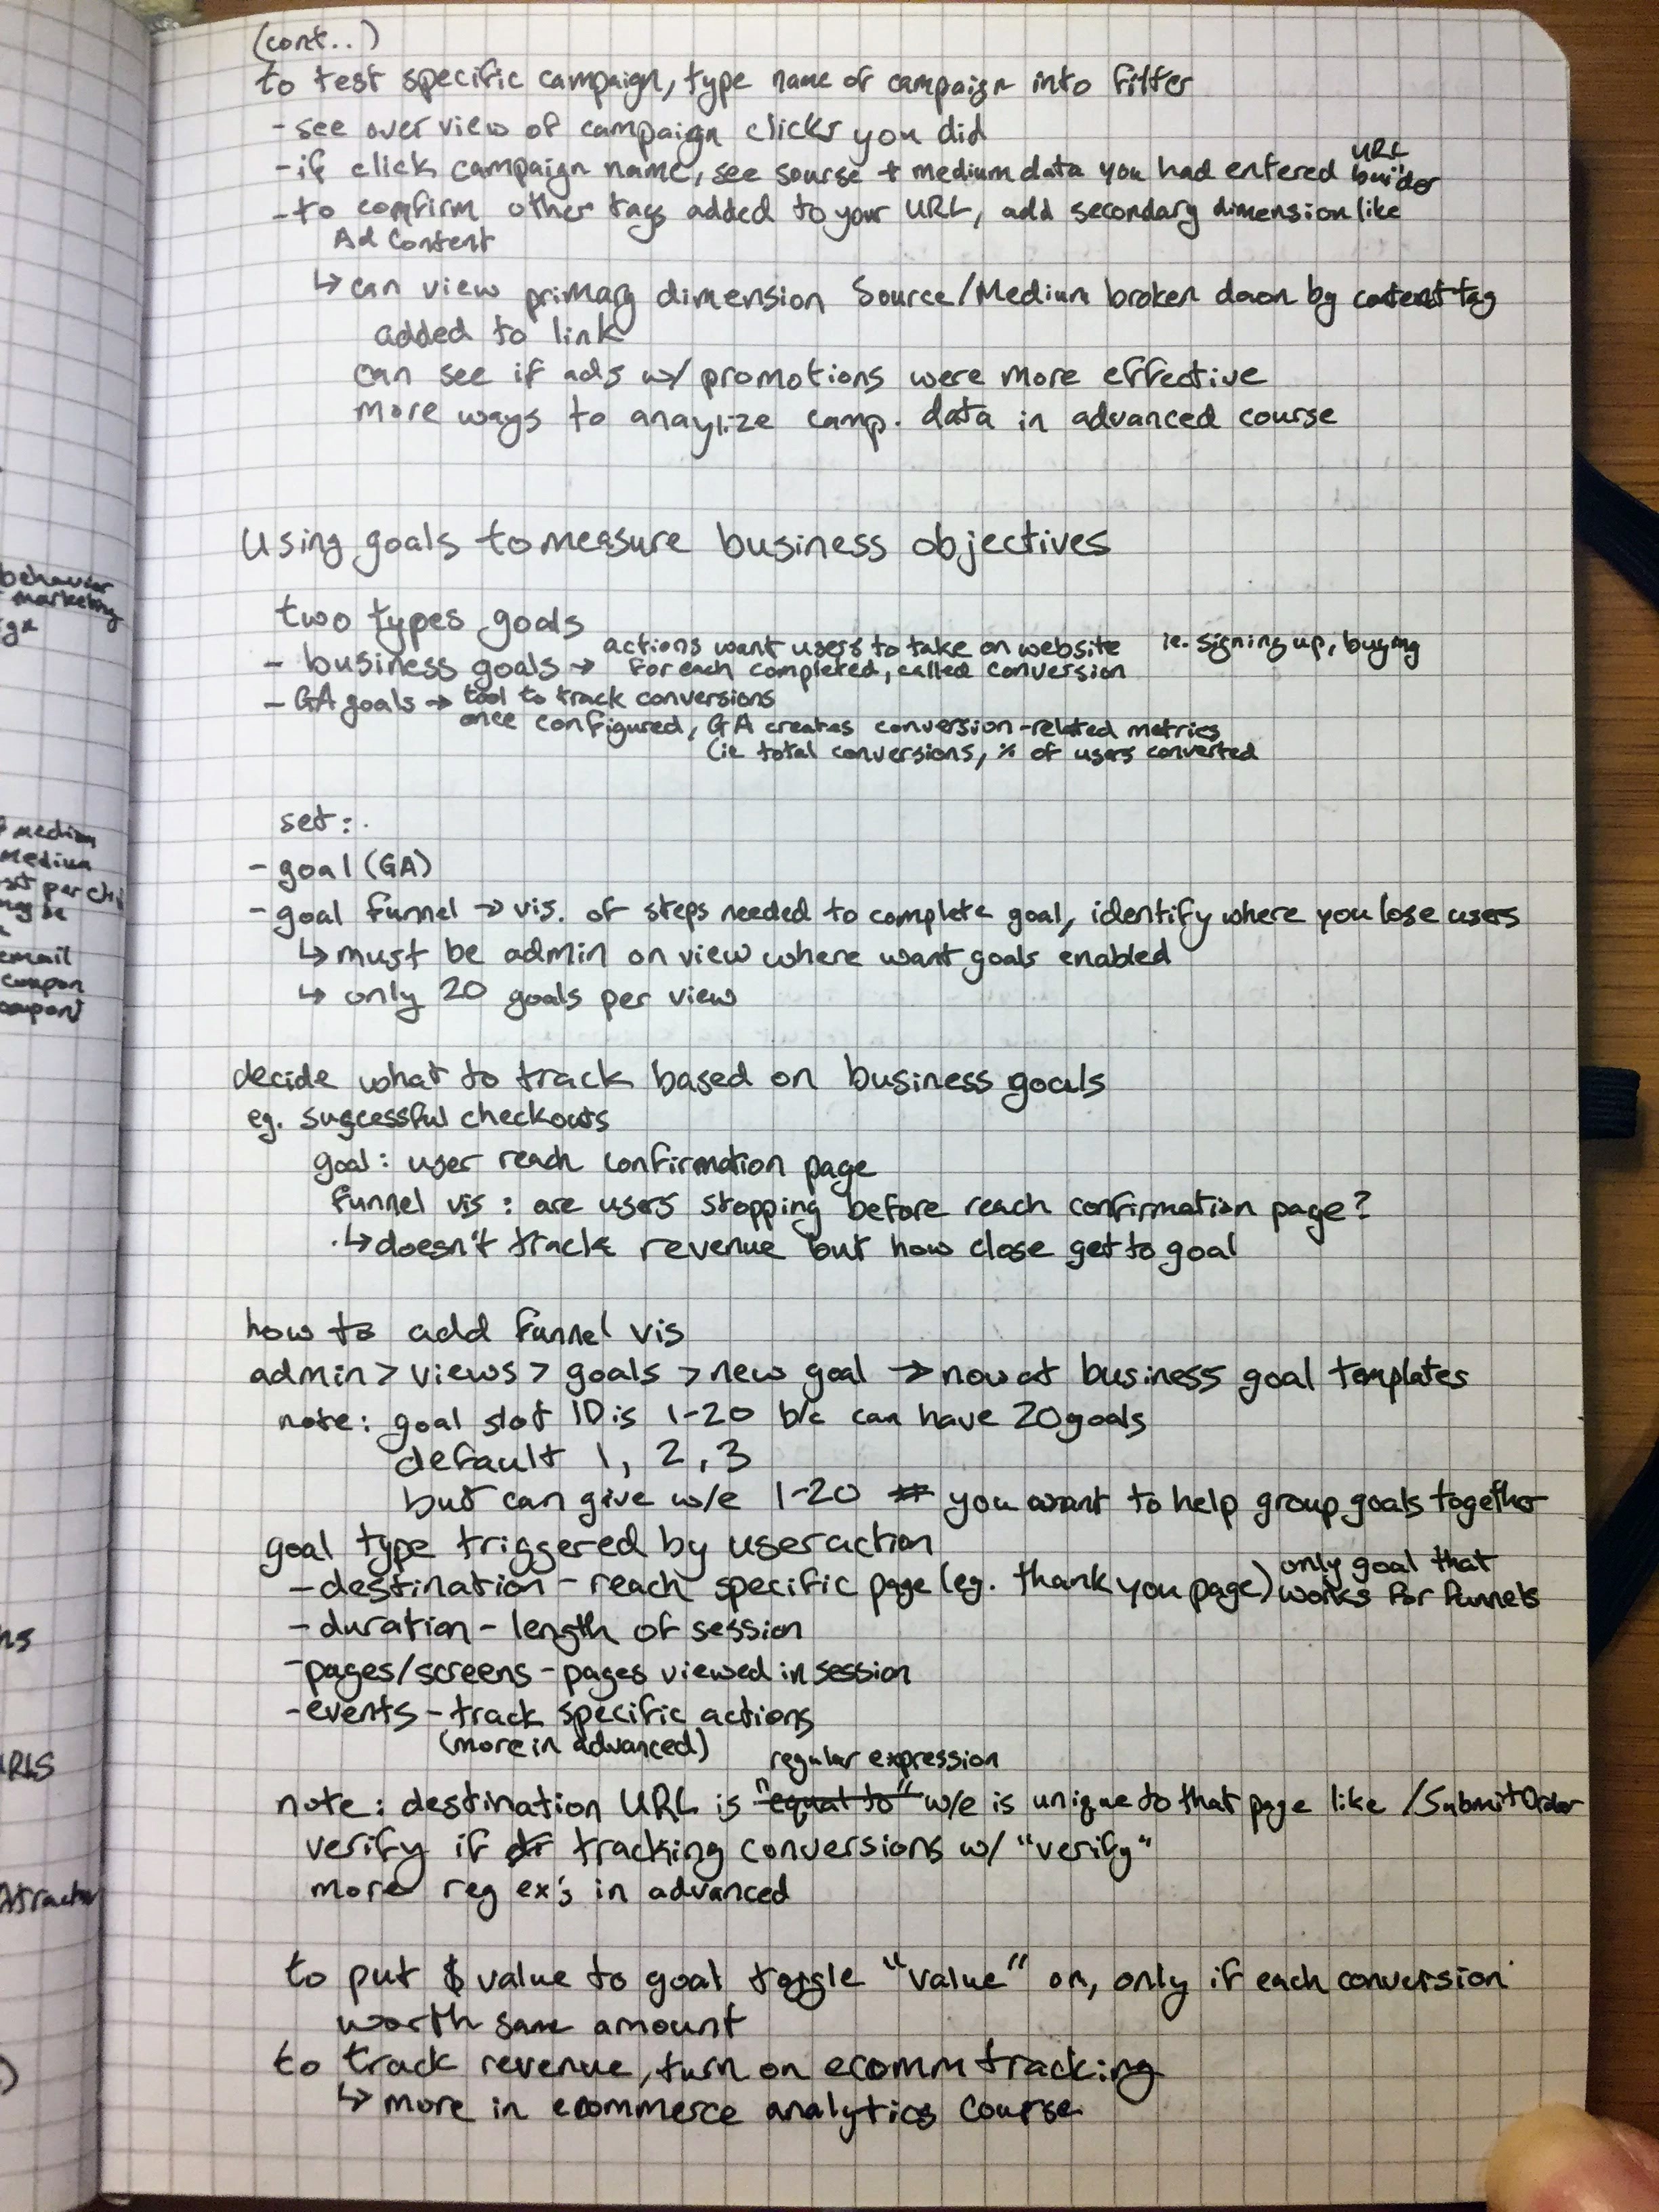 (cont..)
to test specific campaign, type name of campaign into filter
- see overview of campaign clicks you did
- if click campaign name, see sourse + medium data you had entered URL builder
- to comfirm other tags added to your URL, add secondary dimension like
Ad Content
↳ can view primary dimension Source/Medium broken down by content tag
added to link
can see if ads w/ promotions were more effective
more ways to anaylize camp. data in advanced course
Using goals to measure business objectives
two types goals
- business goals → actions want users to take on website ie. signing up, buying
For each completed, called conversion
- GA goals → tool to track conversions
once configured, GA creates conversion-related metrics
(ie total conversions, % of users converted
set:
- goal (GA)
- goal funnel → vis. of steps needed to complete goal, identify where you lose users
↳ must be admin on view where want goals enabled
↳ only 20 goals per view
decide what to track based on business goals
eg. successful checkouts
goal: user reach confirmation page
funnel vis: are users stopping before reach confirmation page?
↳ doesn't track revenue but how close get to goal
how to add funnel vis
admin > views > goals > new goal → now at business goal templates
note: goal slot ID is 1-20 b/c can have 20 goals
default 1, 2, 3
but can give w/e 1-20 # you want to help group goals together
goal type triggered by user action
- destination - reach specific page (eg. thank you page) only goal that works for funnels
- duration - length of session
- pages/screens - pages viewed in session
- events - track specific actions
(more in advanced)
regular expression
note: destination URL is "equal to" w/e is unique to that page like /SubmitOrder
verify if tracking conversions w/ "verify"
more reg ex's in advanced
to put $ value to goal toggle "value" on, only if each conversion
worth same amount
to track revenue, turn on ecomm tracking
↳ more in ecommerce analytics course
behavior
marketing
medium
Medium
may be
email
coupon
coupon